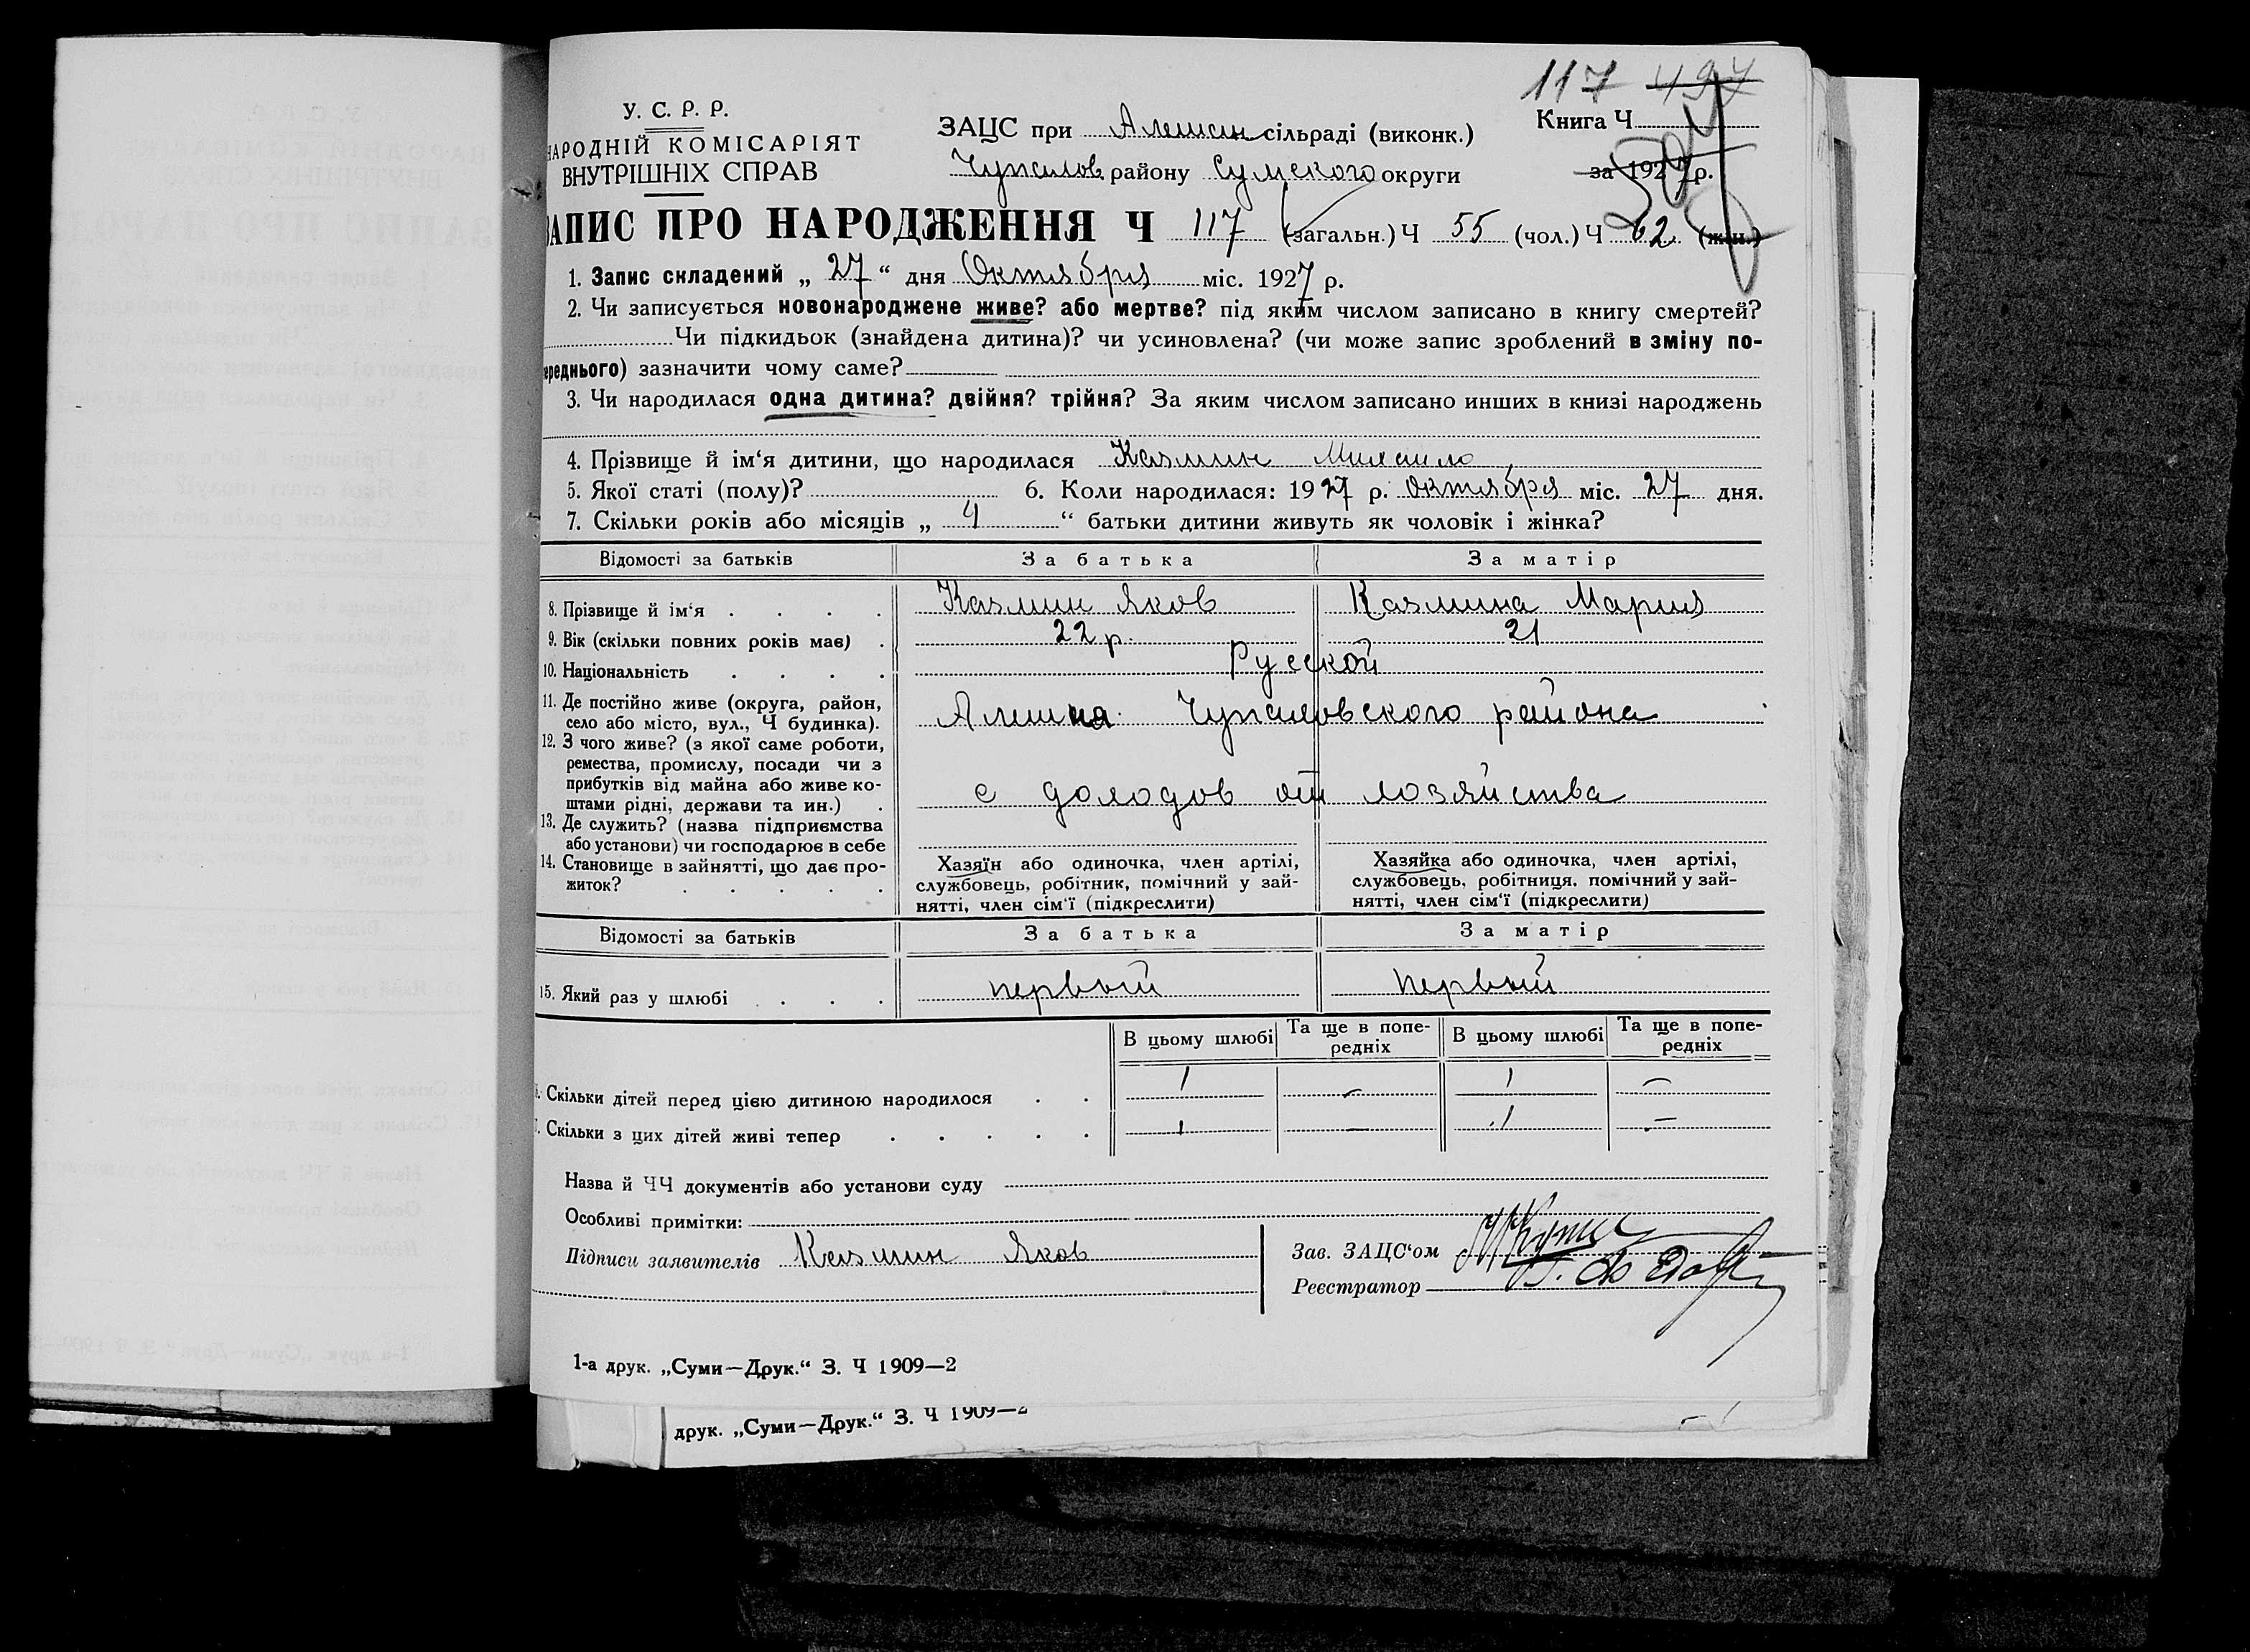 117 497
У. С. Р. Р.
НАРОДНІЙ КОМІСАРІЯТ
ВНУТРІШНІХ СПРАВ
ЗАЦС при Алешин сільраді (виконк.)
Чупахов. району Сумского округи
Книга Ч
за 1927 р.
ЗАПИС ПРО НАРОДЖЕННЯ Ч 117 (загальн.) Ч 55 (чол.) Ч 62 (жін.)
1. Запис складений „ 27 “ дня Октября міс. 1927 р.
2. Чи записується новонароджене живе? або мертве? під яким числом записано в книгу смертей?
Чи підкидьок (знайдена дитина)? чи усиновлена? (чи може запис зроблений в зміну по-
переднього) зазначити чому саме?
3. Чи народилася одна дитина? двійня? трійня? За яким числом записано инших в книзі народжень
4. Прізвище й ім‘я дитини, що народилася Казмин Михаило
5. Якої статі (полу)? 6. Коли народилася: 1927 р. октября міс. 27 дня.
7. Скільки років або місяців „ 4 “ батьки дитини живуть як чоловік і жінка?
Відомості за батьків За батька За матір
8. Прізвище й ім‘я Казмин Яков Казмина Мария
9. Вік (скільки повних років має) 22 р. 21
10. Національність Русской
11. Де постійно живе (округа, район,
село або місто, вул., Ч будинка). Алешна Чупаховского района
12. З чого живе? (з якої саме роботи,
ремества, промислу, посади чи з
прибутків від майна або живе ко-
штами рідні, держави та ин.) с доходов от хозяйства
13. Де служить? (назва підприємства
або установи) чи господарює в себе
14. Становище в зайнятті, що дає про-
житок?
Хазяїн або одиночка, член артілі,
службовець, робітник, помічний у зай-
нятті, член сім‘ї (підкреслити)
Хазяйка або одиночка, член артілі,
службовець, робітниця, помічний у зай-
нятті, член сім‘ї (підкреслити)
Відомості за батьків За батька За матір
15. Який раз у шлюбі первый первый
В цьому шлюбі Та ще в попе-
редніх В цьому шлюбі Та ще в попе-
редніх
Скільки дітей перед цією дитиною народилося 1 — 1 —
Скільки з цих дітей живі тепер 1 — 1 —
Назва й ЧЧ документів або установи суду
Особливі примітки:
Підписи заявителів Казмин Яков
Зав. ЗАЦС‘ом
Реєстратор
1-а друк. „Суми—Друк.“ З. Ч 1909—2
друк. „Суми—Друк.“ З. Ч 1909—2